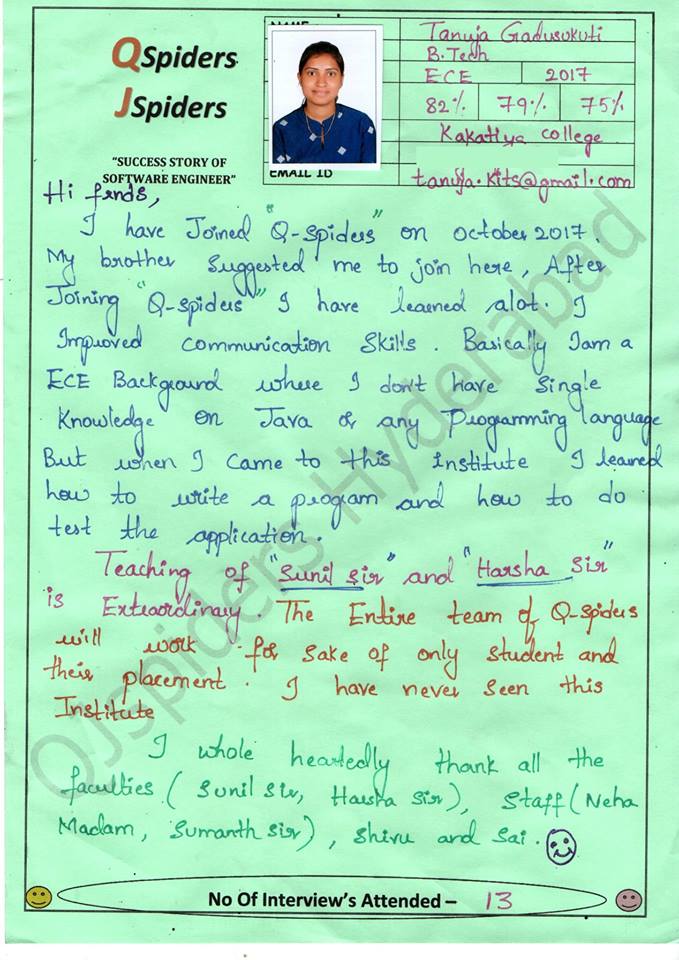 QSpiders
JSpiders
"SUCCESS STORY OF
SOFTWARE ENGINEER"
Tanuja Gadusukuti
B.Tech
ECE 2017
82% 79% 75%
Kakatiya college
EMAIL ID tanuja.kits@gmail.com
Hi frnds,
I have Joined "Q-spiders" on October 2017.
My brother suggested me to join here, After
Joining "Q-spiders" I have learned alot. I
Improved communication skills. Basically I am a
ECE Background where I don't have single
knowledge on Java or any Programming language
But when I came to this institute I learned
how to write a program and how to do
test the application.
Teaching of "Sunil sir" and "Harsha sir"
is Extraordinary. The Entire team of Q-spiders
will work for sake of only student and
their placement. I have never seen this
Institute
I whole heartedly thank all the
faculties ( Sunil sir, Harsha sir), staff (Neha
Madam, Sumanth sir), shivu and Sai.
No Of Interview's Attended – 13
QJspiders Hyderabad